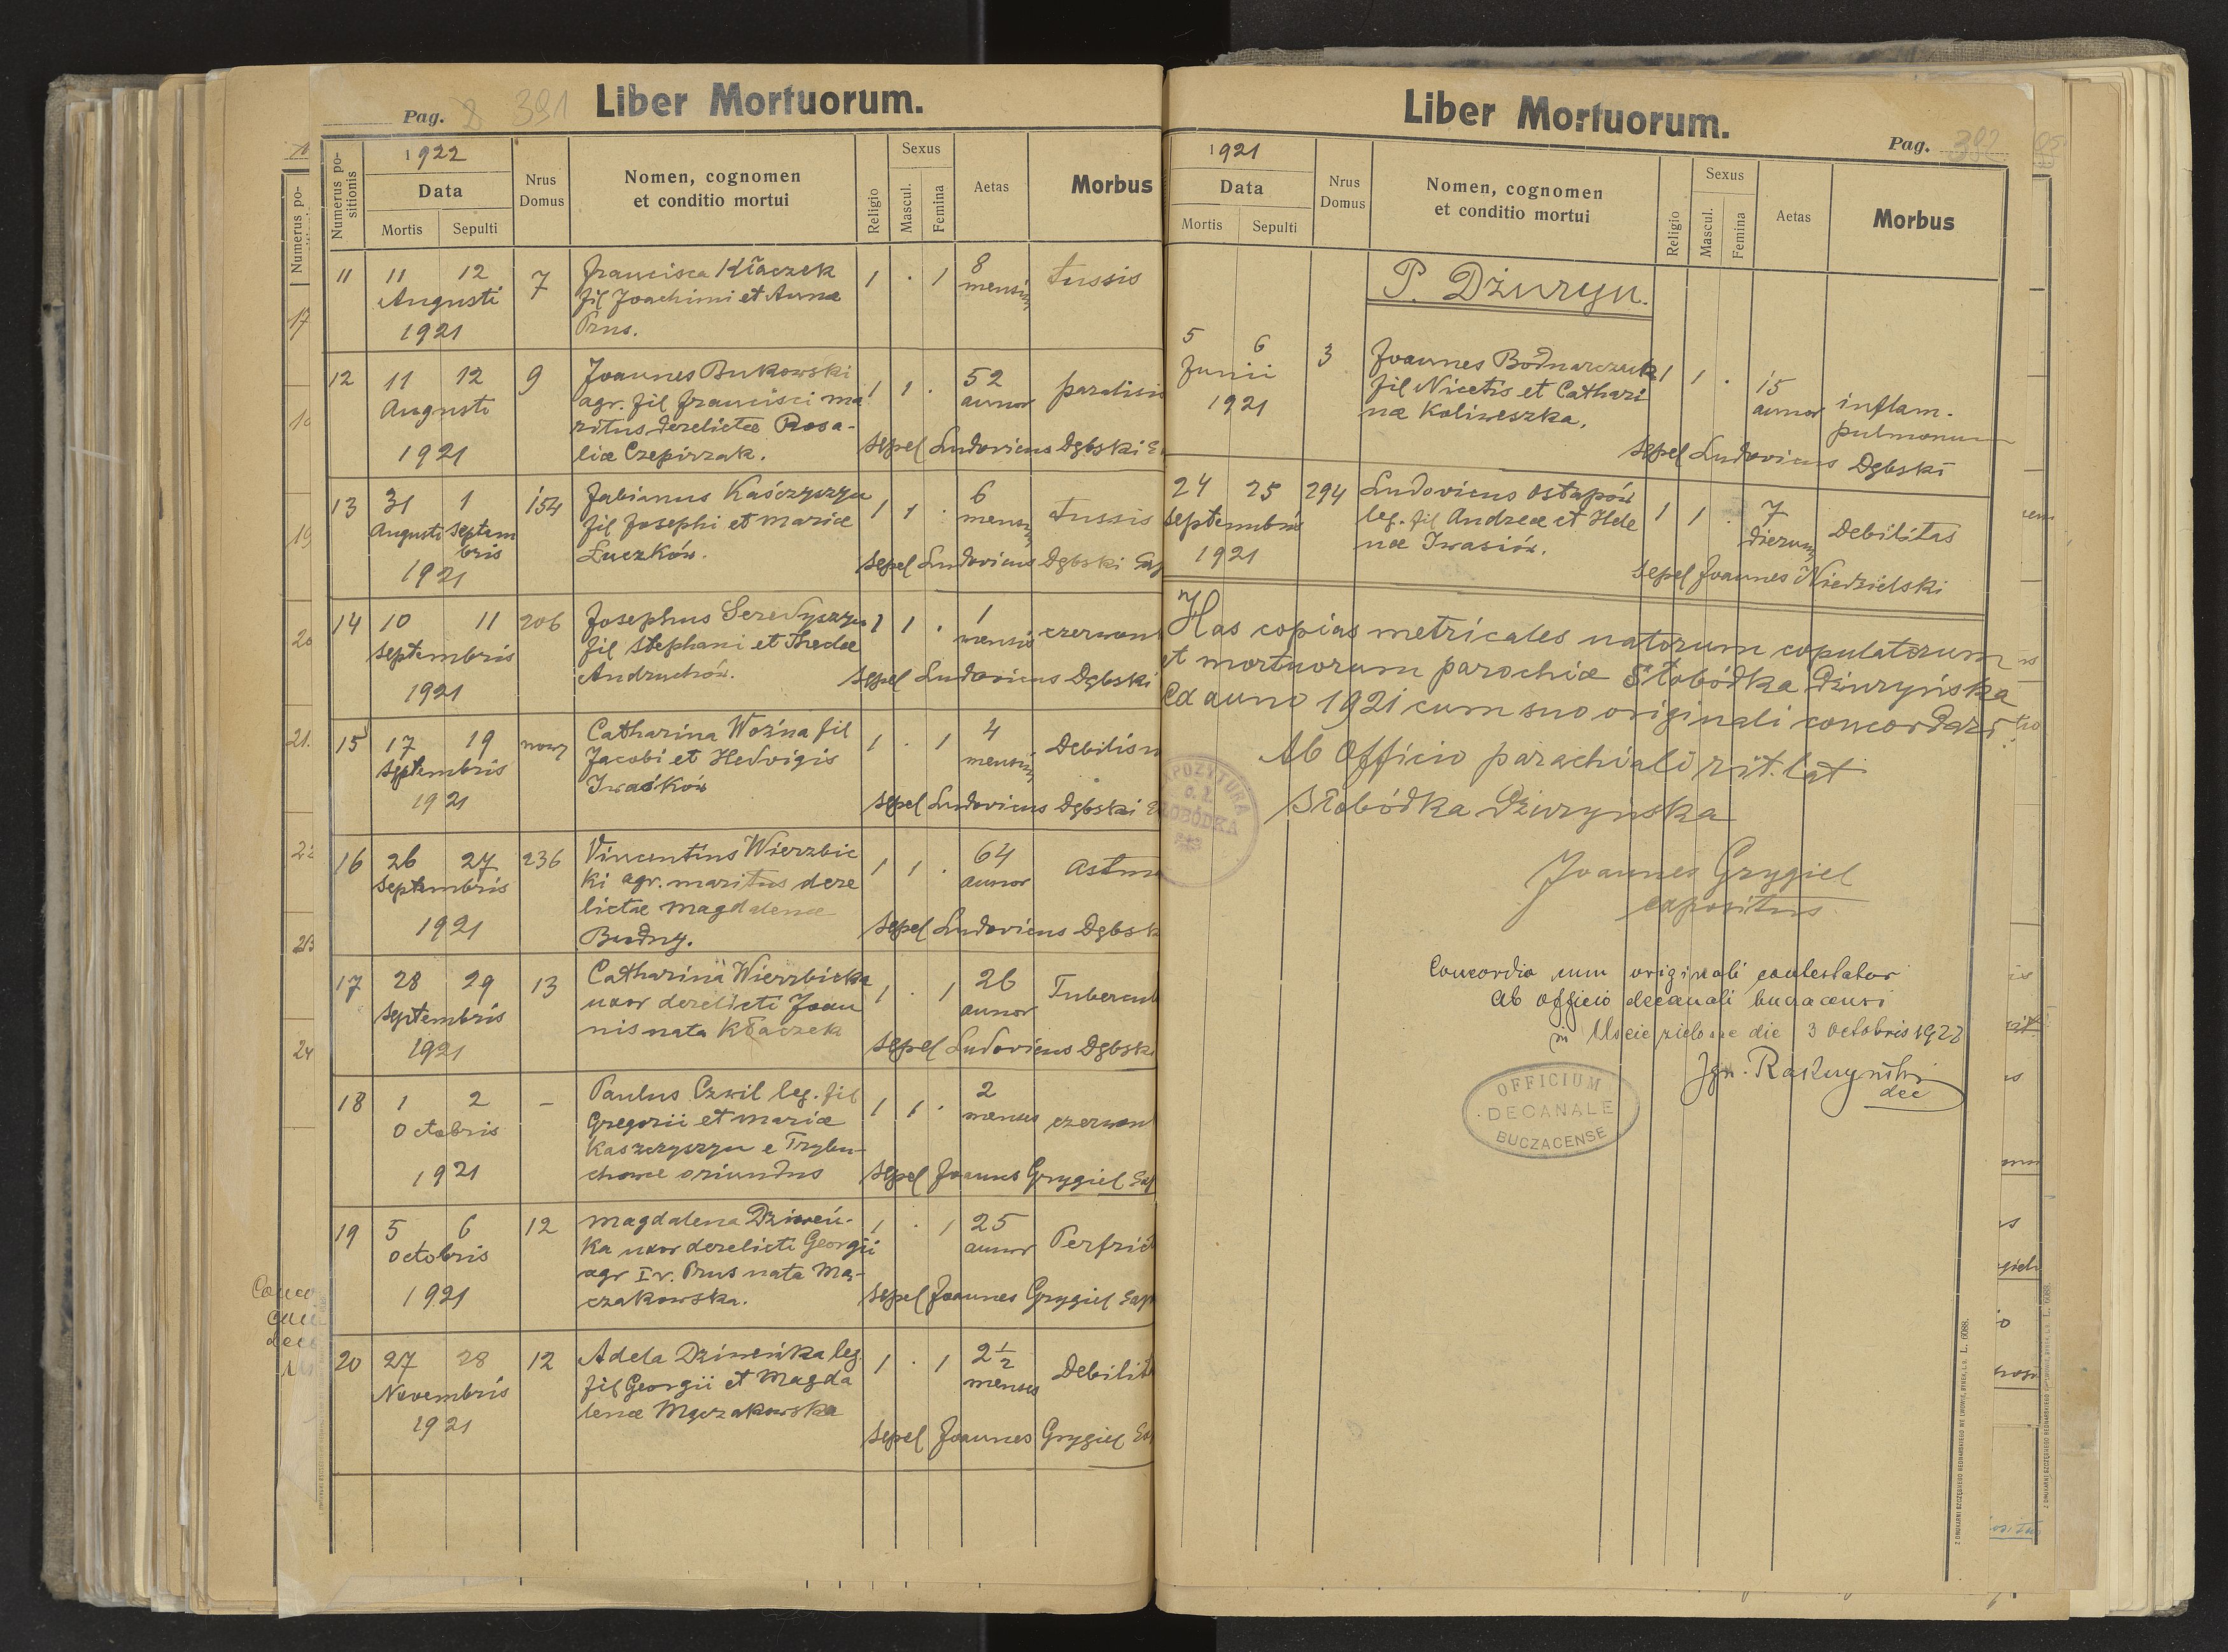 Pag. 391
Liber Mortuorum.
Numerus positionis
1922
Data
Mortis
Sepulti
Nrus Domus
Nomen, cognomen
et conditio mortui
Religio
Sexus
Mascul.
Femina
Aetas
Morbus
11 11 12 7 Francisca Kłaczek 1 . 1 8 tussis
Augusti fil Joachimi et Annae mensium
1921 Prus.
12 11 12 9 Joannes Bukowski 1 1 . 52 paralisis
Augusti agr. fil Francisci ma annor
ritus derelictae Rosa-
1921 liae Czepirzak. sepel Ludovicus Dębski
13 31 1 154 Fabianus Kaśczyszyn 1 1 . 6 tussis
Augusti Septem fil Josephi et Mariae mensium
bris Łuczków.
1921 sepel Ludovicus Dębski
14 10 11 206 Josephus Seredyszyn 1 1 . 1
Septembris fil Stephani et Theclae mensis
1921 Andruchów. sepel Ludovicus Dębski
15 17 19 nowy Catharina Woźna fil 1 . 1 4
Septembris Jacobi et Hedvigis mensium
1921 Iwaśków sepel Ludovicus Dębski
16 26 27 236 Vincentius Wierzbic 1 1 . 64
Septembris ki agr. maritus dere annor
lictae Magdalenae
1921 Budny. sepel Ludovicus Dębsk
17 28 29 13 Catharina Wierzbicka 1 . 1 26 Tubercul
Septembris uxor derelicti Joan annor
1921 nis nata Kłaczek sepel Ludovicus Dębski
18 1 2 – Paulus Czwil leg. fil 1 1 . 2
Octobris Gregorii et Mariae menses
Kaszczyszyn e Trybu-
1921 chowce oriundus sepel Joannes Grygiel
19 5 6 12 Magdalena Dziweń- 1 . 1 25 Perfrict
Octobris ka uxor derelicti Georgii annor
agr I v. Prus nata Mą-
1921 czakowska. sepel Joannes Grygiel
20 27 28 12 Adela Dziweńka leg. 1 . 1 2½ Debilit
Novembris fil Georgii et Magda menses
1921 lenae Mączakowska
sepel Joannes Grygiel
Liber Mortuorum.
Pag. 392
1921
Data
Mortis
Sepulti
Nrus Domus
Nomen, cognomen
et conditio mortui
Religio
Sexus
Mascul.
Femina
Aetas
Morbus
P. Dżuryn.
5 6 3 Joannes Bodnarczuk 1 1 . 15 inflam.
Junii fil Nicetis et Cathari annor pulmonum
1921 nae Koliweszka.
sepel Ludovicus Dębski
24 25 294 Ludovicus Ostapów 1 1 . 7 Debilitas
Septembris leg. fil Andreae et Hele dierum
1921 nae Iwasiów.
sepel Joannes Niedzielski
Has copias metricales natorum copulatorum
et mortuorum parochiae Słobódka Dżuryńska
ex anno 1921 cum suo originali concordari
Ab Officio parochiali rit. lat
Słobódka Dżuryńska
Joannes Grygiel
expositus
Concordia cum originali contestatur
Ab officio decanali buczacensi
in Uscie zielone die 3 Octobris 1922
dec
OFFICIUM
DECANALE
BUCZACENSE